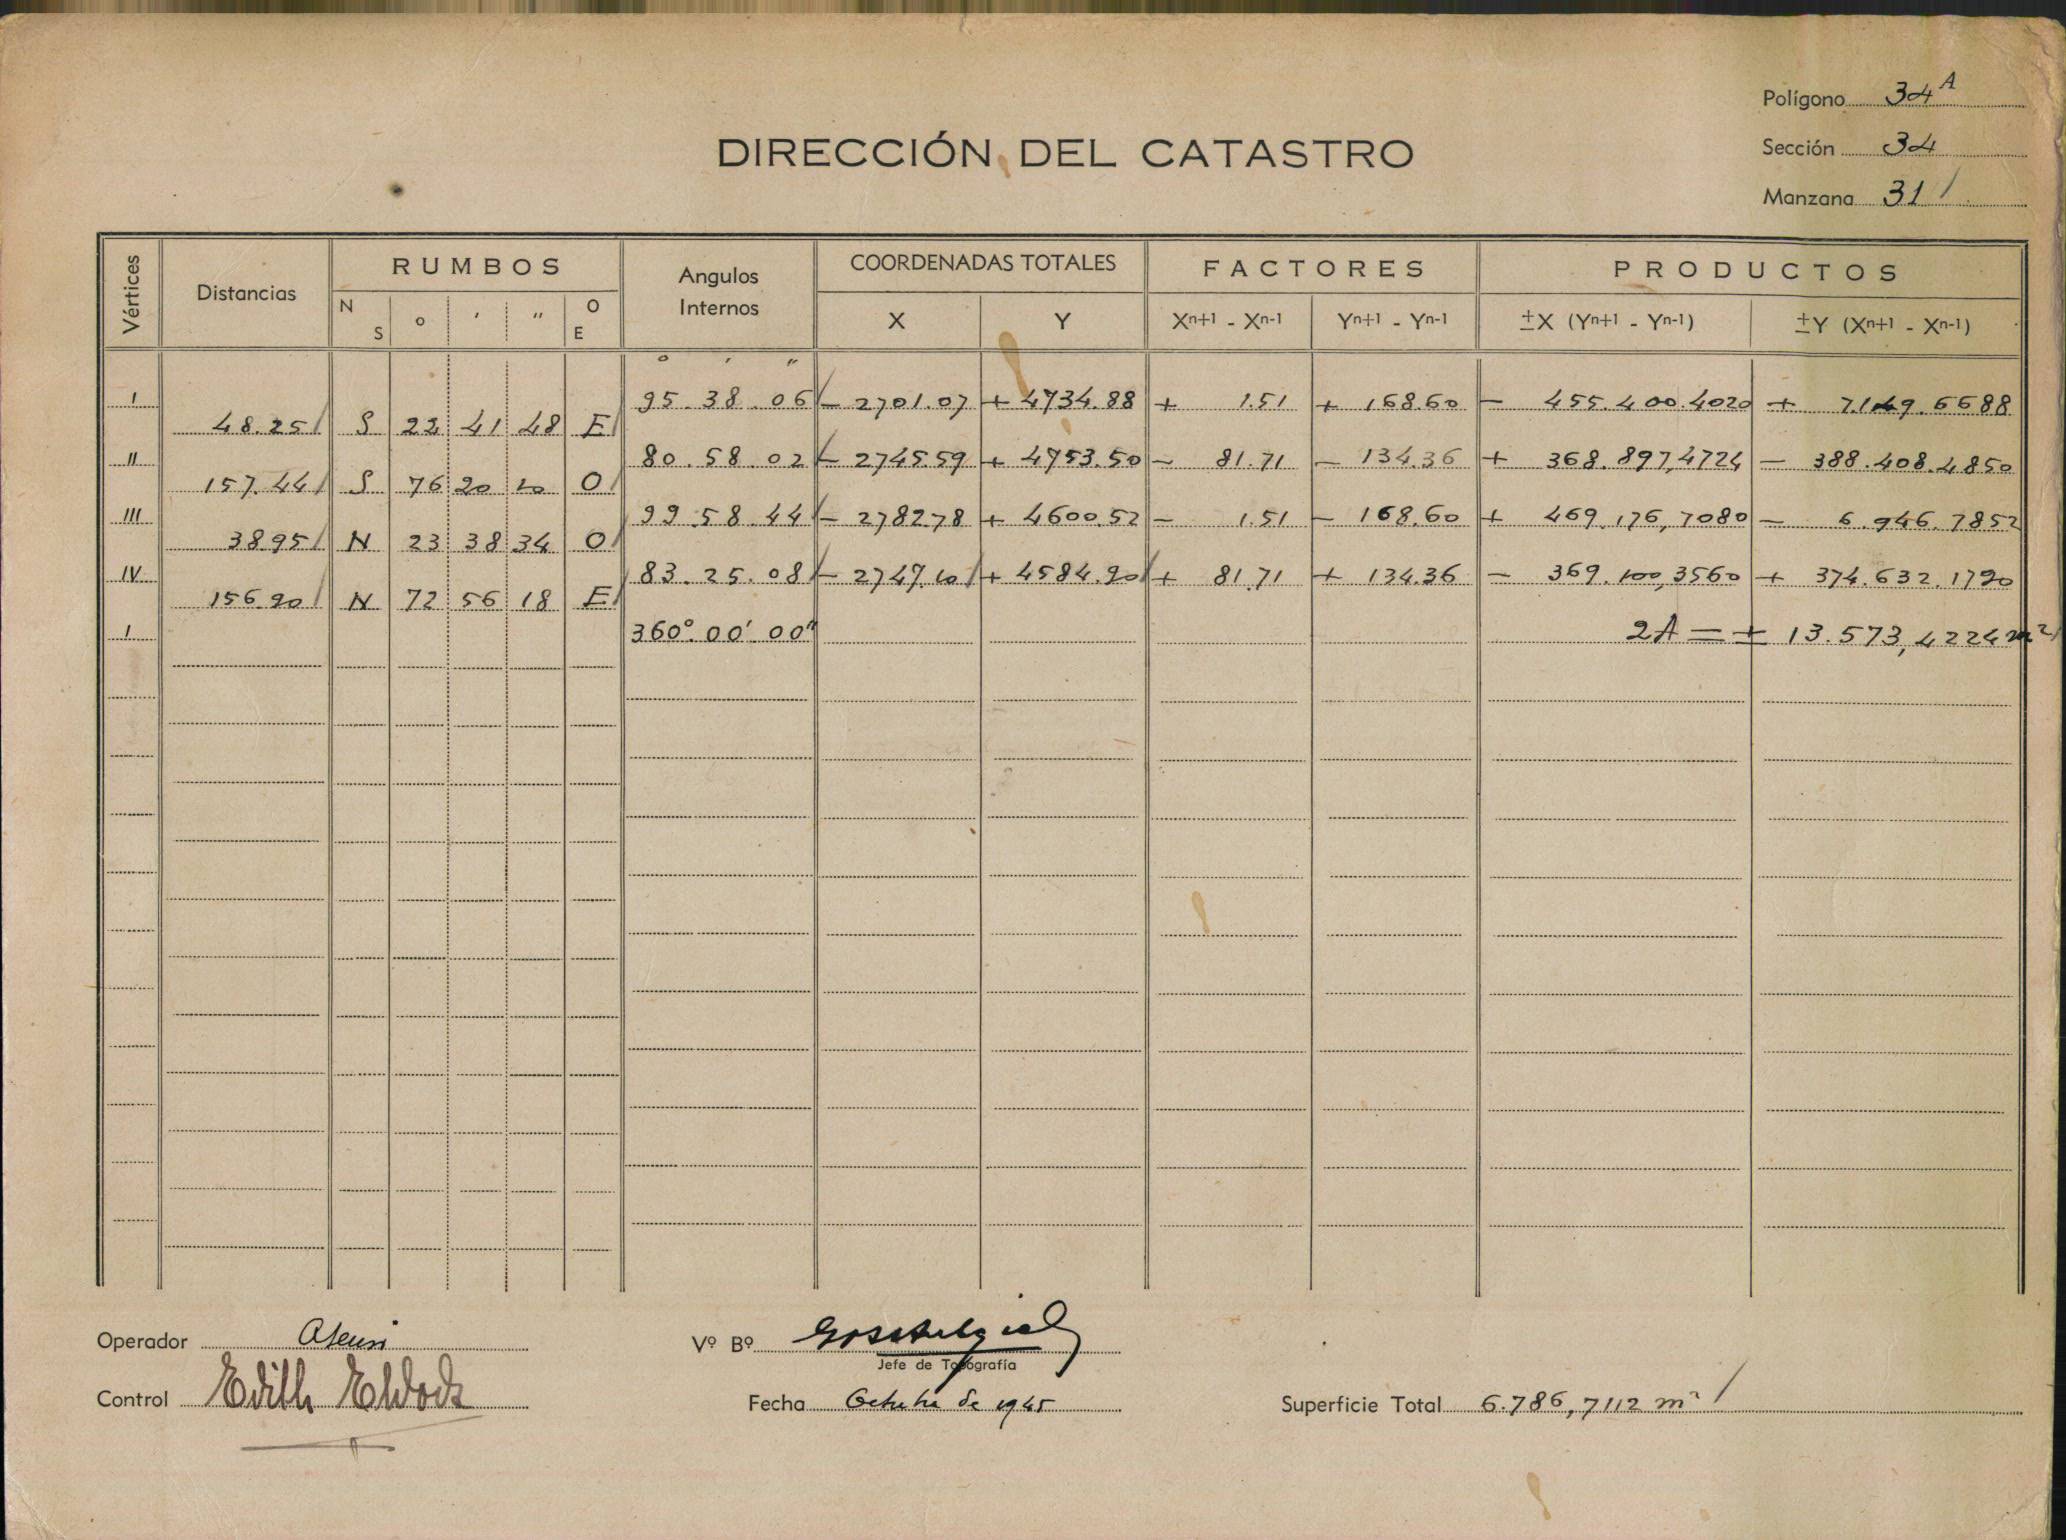 Polígono 34 A
Sección 34
Manzana 31 /
DIRECCIÓN DEL CATASTRO
Vértices Distancias RUMBOS Angulos Internos COORDENADAS TOTALES FACTORES PRODUCTOS
N S o ' " O E X Y Xn+1 - Xn-1 Yn+1 - Yn-1 ±X (Yn+1 - Yn-1) ±Y (Xn+1 - Xn-1)
o ' "
I 95.38.06 / - 2701.07 + 4734.88 + 1.51 + 168.60 - 455.400.4020 + 7.149.6688
48.25 / S 22 41 48 E /
II 80.58.02 / - 2745.59 + 4753.50 - 81.71 - 134.36 + 368.897,4724 - 388.408.4850
157.44 / S 76 20 20 O /
III 99.58.44 / - 2782.78 + 4600.52 - 1.51 - 168.60 + 469.176,7080 - 6.946.7852
38.95 / N 23 38 34 O /
IV 83.25.08 / - 2747.10 / + 4584.90 / + 81.71 + 134.36 - 369.100,3560 + 374.632.1790
156.90 / N 72 56 18 E /
I 360°.00'.00" 2A = + 13.573,4224 m² /
Operador Vº Bº
Jefe de Topografía
Control Edith Fecha Octubre de 1945 Superficie Total 6.786,7112 m² /